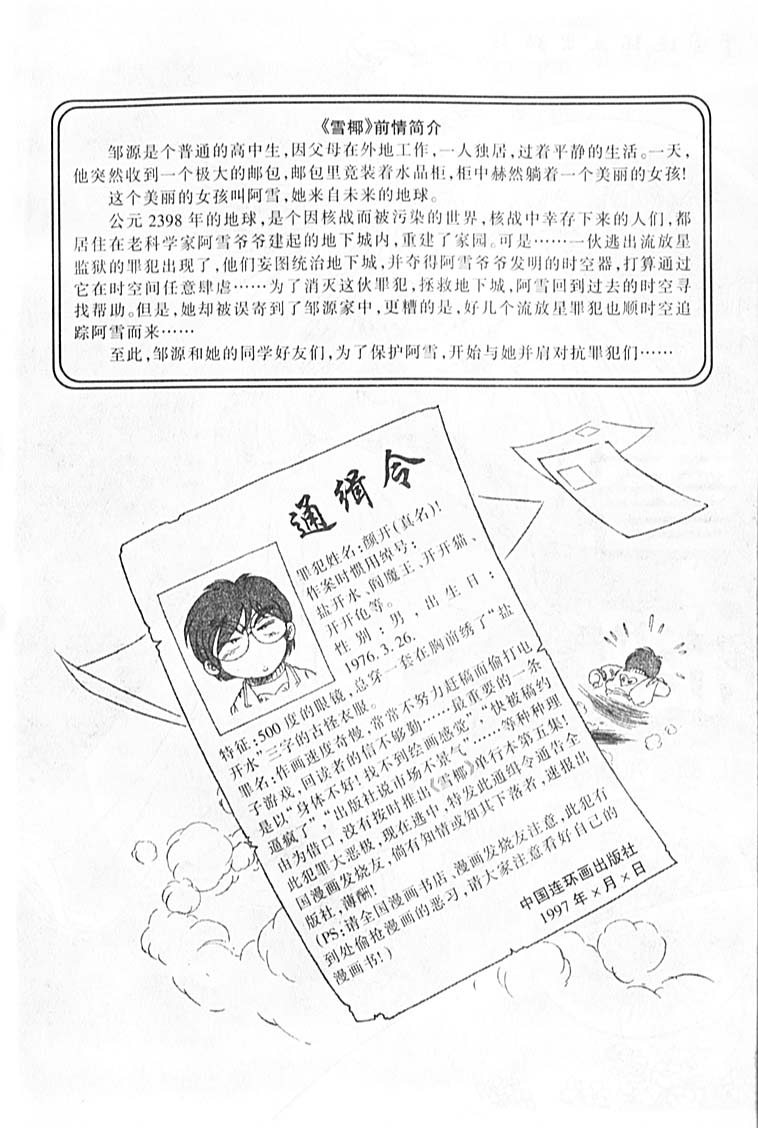 《雪椰》前情简介
邹源是个普通的高中生,因父母在外地工作,一人独居,过着平静的生活。一天,
他突然收到一个极大的邮包,邮包里竟装着水晶柜,柜中赫然躺着一个美丽的女孩!
这个美丽的女孩叫阿雪,她来自未来的地球。
公元 2398 年的地球,是个因核战而被污染的世界,核战中幸存下来的人们,都
居住在老科学家阿雪爷爷建起的地下城内,重建了家园。可是……一伙逃出流放星
监狱的罪犯出现了,他们妄图统治地下城,并夺得阿雪爷爷发明的时空器,打算通过
它在时空间任意肆虐……为了消灭这伙罪犯,拯救地下城、阿雪回到过去的时空寻
找帮助。但是,她却被误寄到了邹源家中,更糟的是,好几个流放星罪犯也顺时空追
踪阿雪而来……
至此,邹源和她的同学好友们,为了保护阿雪,开始与她并肩对抗罪犯们……
通缉令
罪犯姓名:颜开(真名)!
作案时惯用绰号:
盐开水、阎魔王、开开猫、
开开龟等。
性别:男,出生日:
1976.3.26.
特征:500度的眼镜,总穿一套在胸前绣了“盐
开水”三字的古怪衣服。
罪名:作画速度奇慢,常常不努力赶稿而偷打电
子游戏,回读者的信不够勤……最重要的一条
是以“身体不好!找不到绘画感觉”,“快被稿约
逼疯了”,“出版社说市场不景气”……等种种理
由为借口,没有按时推出《雪椰》单行本第五集!
此犯罪大恶极,现在逃中,特发此通缉令通告全
国漫画发烧友,倘有知情或知其下落者,速报出
版社,薄酬!
(PS:请全国漫画书店、漫画发烧友注意,此犯有
到处偷抢漫画的恶习,请大家注意看好自己的
漫画书!)
中国连环画出版社
1997年×月×日